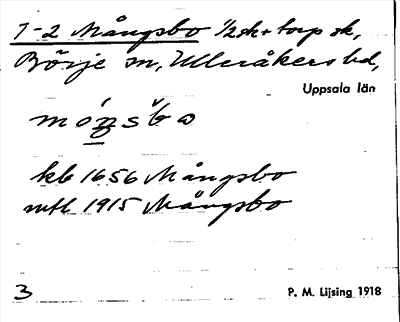 1-2 Mångsbo 1/2 sk + torp sk,
Börje sn, Ulleråkers hd,
Uppsala län
kb 1656 Mångsbo
mtl 1915 Mångsbo
3 P. M. Lijsing 1918